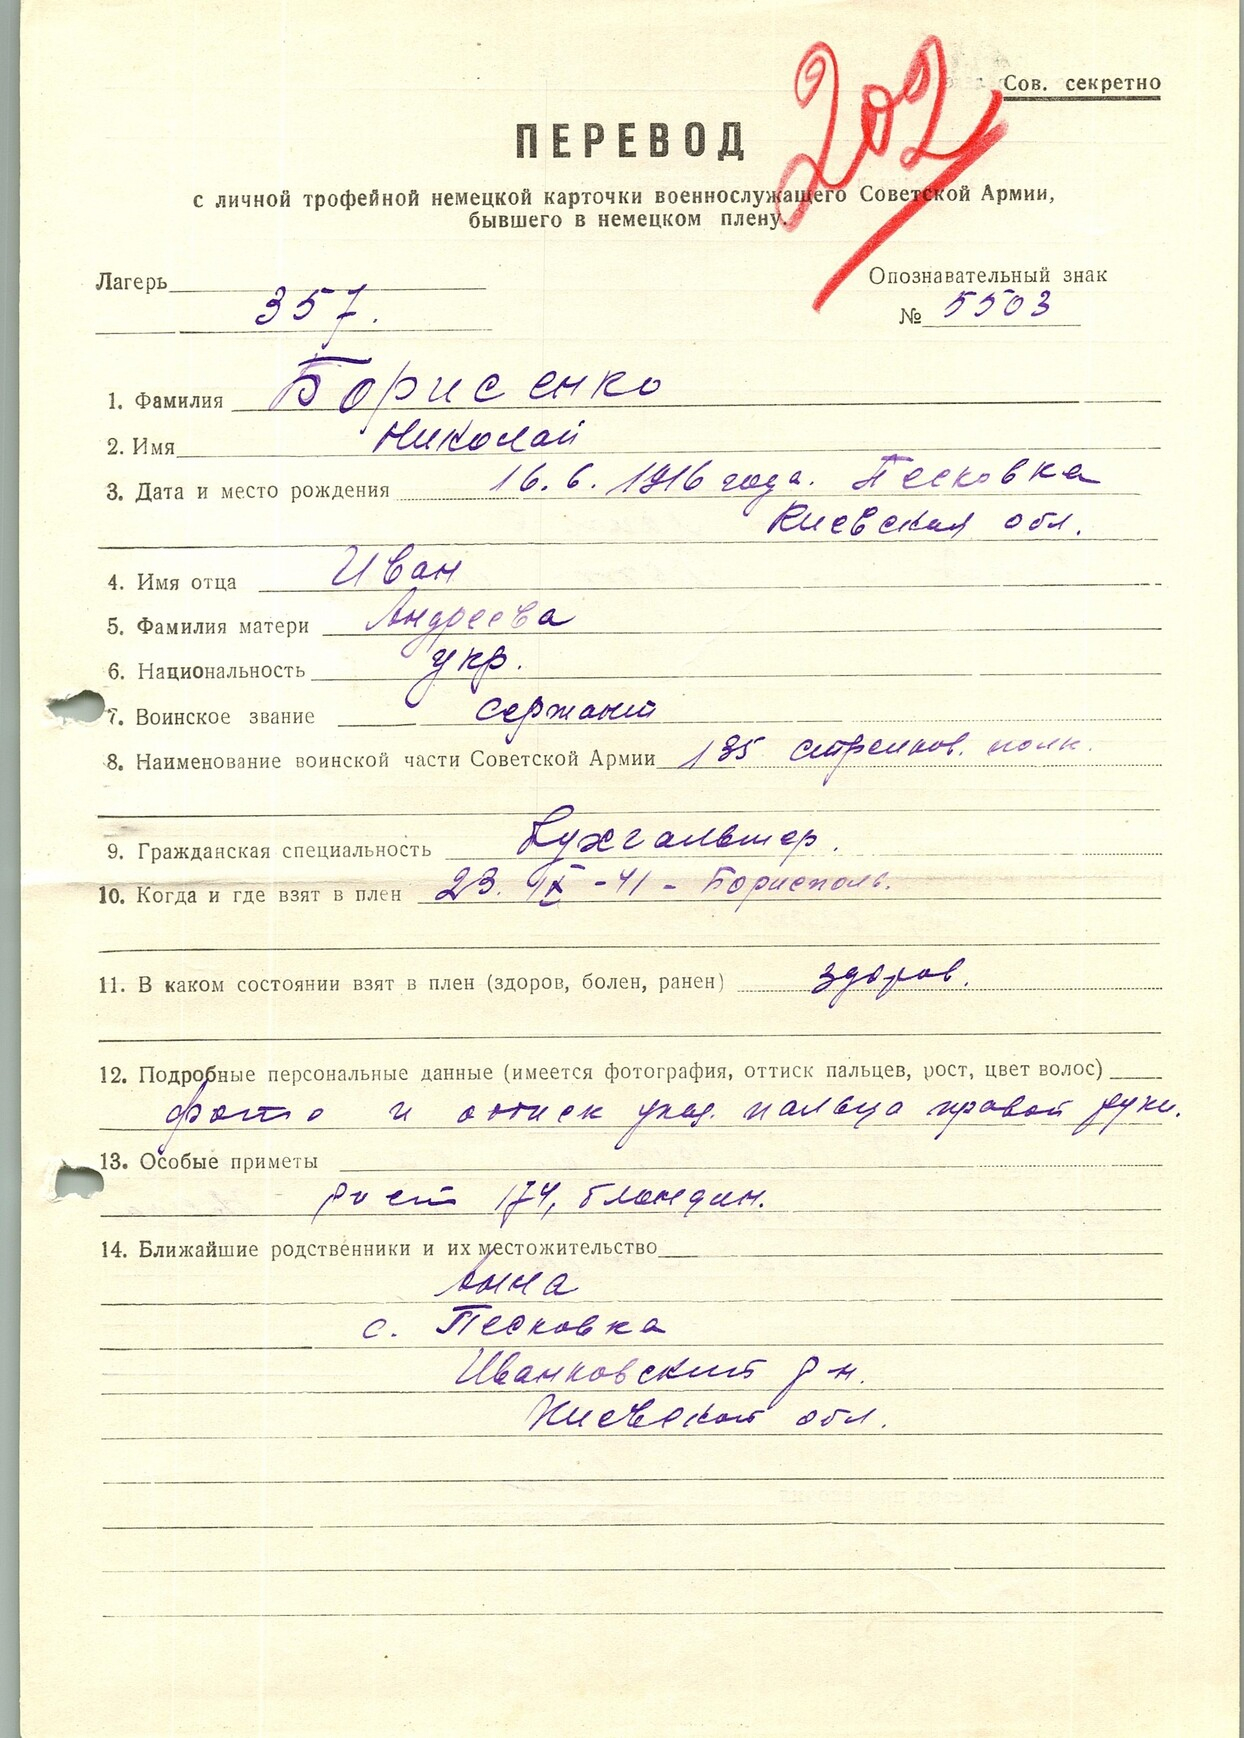 202
Сов. секретно
ПЕРЕВОД
с личной трофейной немецкой карточки военнослужащего Советской Армии,
бывшего в немецком плену.
Лагерь
357.
Опознавательный знак
№ 5503
1. Фамилия Борисенко
2. Имя Николай
3. Дата и место рождения 16.6.1916 года. Песковка
Киевская обл.
4. Имя отца Иван
5. Фамилия матери Андреева
6. Национальность укр.
7. Воинское звание сержант
8. Наименование воинской части Советской Армии 135 стрелков. полк.
9. Гражданская специальность Бухгалтер.
10. Когда и где взят в плен 23. IX - 41 - Борисполь.
11. В каком состоянии взят в плен (здоров, болен, ранен) здоров.
12. Подробные персональные данные (имеется фотография, оттиск пальцев, рост, цвет волос)
фото и оттиск указ. пальца правой руки.
13. Особые приметы
рост 174, блондин.
14. Ближайшие родственники и их местожительство
Анна
с. Песковка
Иванковский р-н.
Киевской обл.